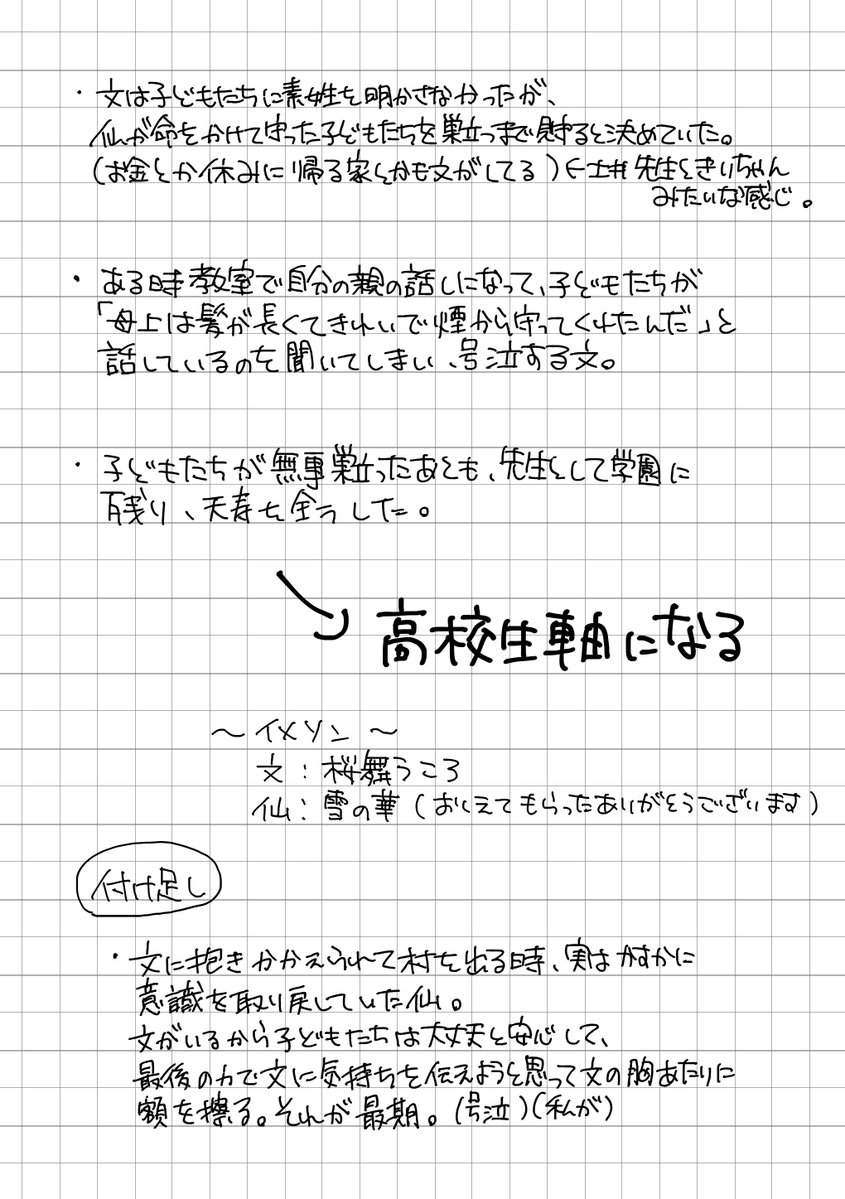 ・文は子どもたちに素姓を明かさなかったが、
仙が命をかけて守った子どもたちを巣立つまで見守ると決めていた。
(お金とか休みに帰る家とかも文がしてる)←土井先生ときりちゃん
みたいな感じ。
・ある時教室で自分の親の話しになって、子どもたちが
「母上は髪が長くてきれいで煙から守ってくれたんだ」と
話しているのを聞いてしまい、号泣する文。
・子どもたちが無事巣立ったあとも、先生として学園に
残り、天寿を全うした。
高校生軸になる
～イメソン～
文:桜舞うころ
仙:雪の華(おしえてもらったありがとうございます)
付け足し
・文に抱きかかえられて村を出る時、実はかすかに
意識を取り戻していた仙。
文がいるから子どもたちは大丈夫と安心して、
最後の力で文に気持ちを伝えようと思って文の胸あたりに
額を擦る。それが最期。(号泣)(私が)